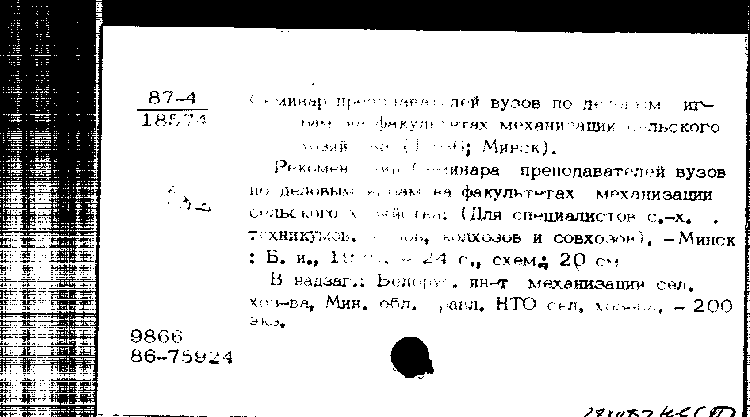 87-4
18574
Семинар преподавателей вузов по деловым иг-
рам на факультетах механизации сельского
хозяйства (; Минск).
Рекомен семинара преподавателей вузов
по деловым играм на факультетах механизации
сельского хозяйства: (Для специалистов с.-х.
техникумов, колхозов и совхозов). - Минск
: Б. и., - 24 с., схем.; 20 см
В надзаг.: Белорус. ин-т механизации сел.
хоз-ва, Мин. обл. правл. НТО сел. хоз-ва. - 200
экз.
9866
86-75924